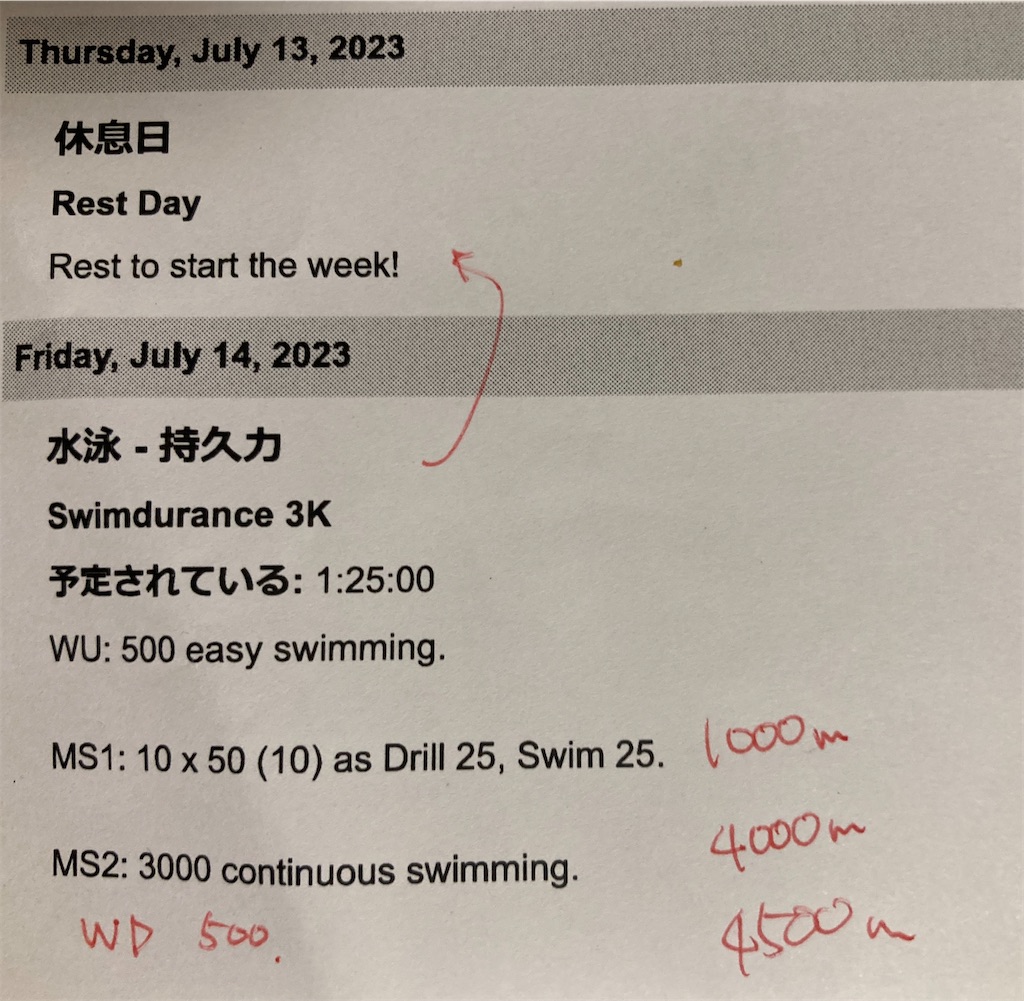 Thursday, July 13, 2023
休息日
Rest Day
Rest to start the week!
Friday, July 14, 2023
水泳 - 持久力
Swimdurance 3K
予定されている: 1:25:00
WU: 500 easy swimming.
MS1: 10 x 50 (10) as Drill 25, Swim 25. 1000m
MS2: 3000 continuous swimming. 4000m
WD 500. 4500m